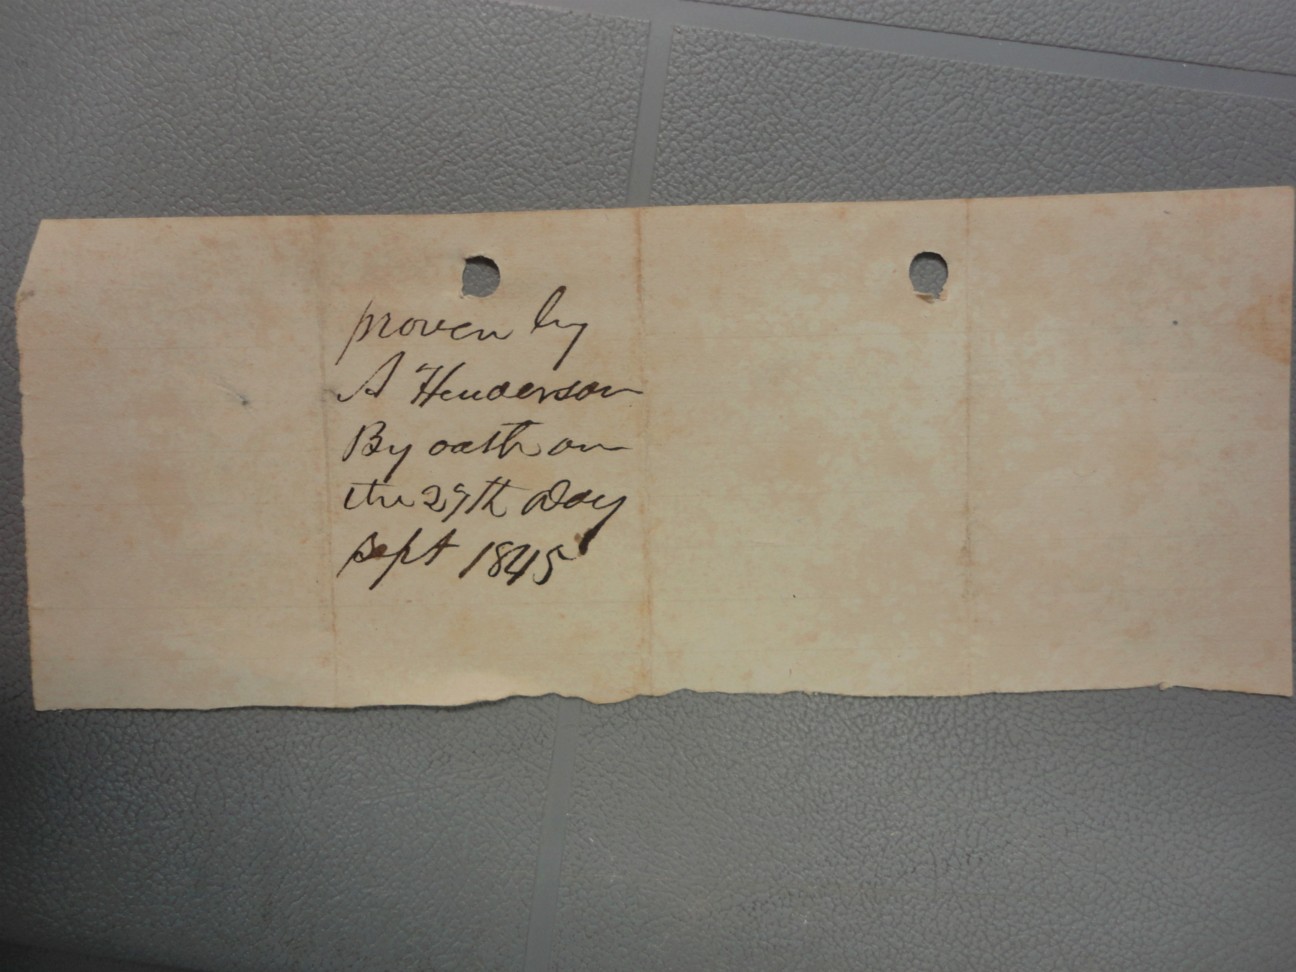 proven by
A Henderson
By oath on
the 29th Day
Sept 1845